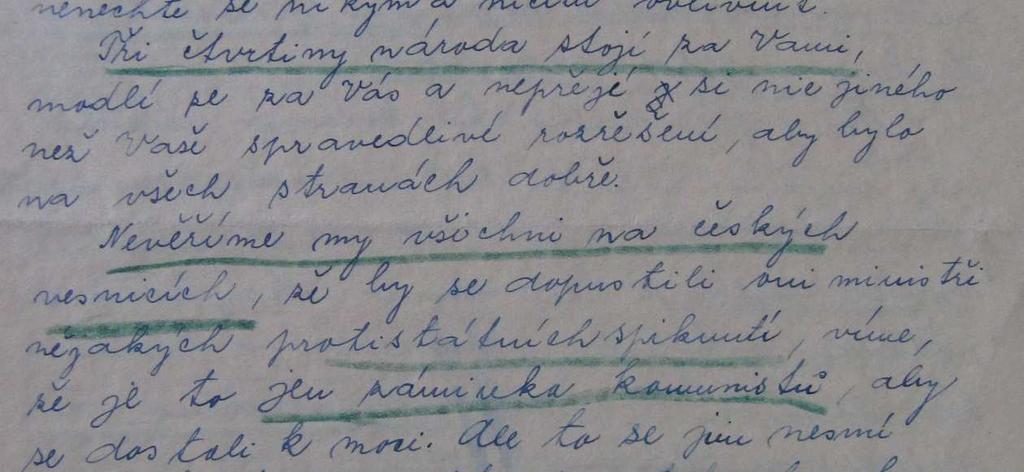 nenechte se nikým a ničím ovlivnit.
Tři čtvrtiny národa stojí za Vámi,
modlí se za Vás a nepřejé si nic jiného
než Vaše spravedlivé rozřešení, aby bylo
na všech stranách dobře.
Nevěříme my všichni na českých
vesnicích, že by se dopustili oni ministři
nějakých protistátních spiknutí, víme,
že je to jen záminka komunistů, aby
se dostali k moci. Ale to se jim nesmí